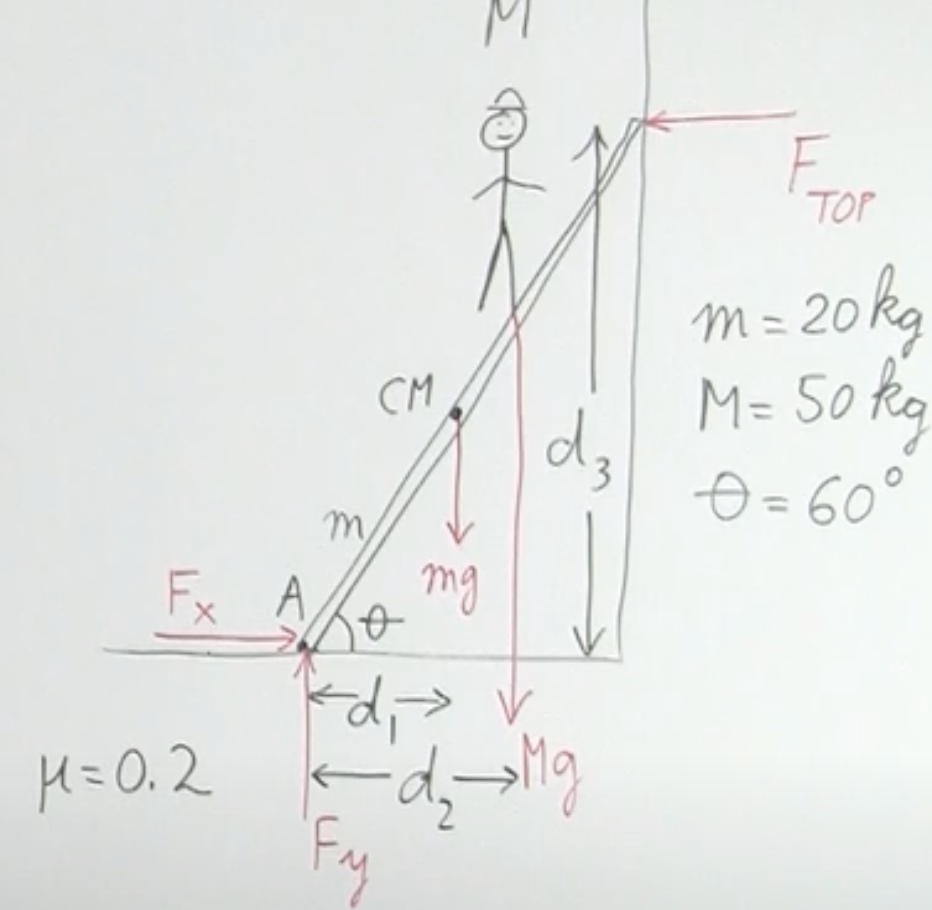 M
F TOP
m = 20 kg
M = 50 kg
θ = 60°
CM
d₃
m
mg
Fₓ
A
θ
d₁
μ = 0.2
d₂
Mg
Fy